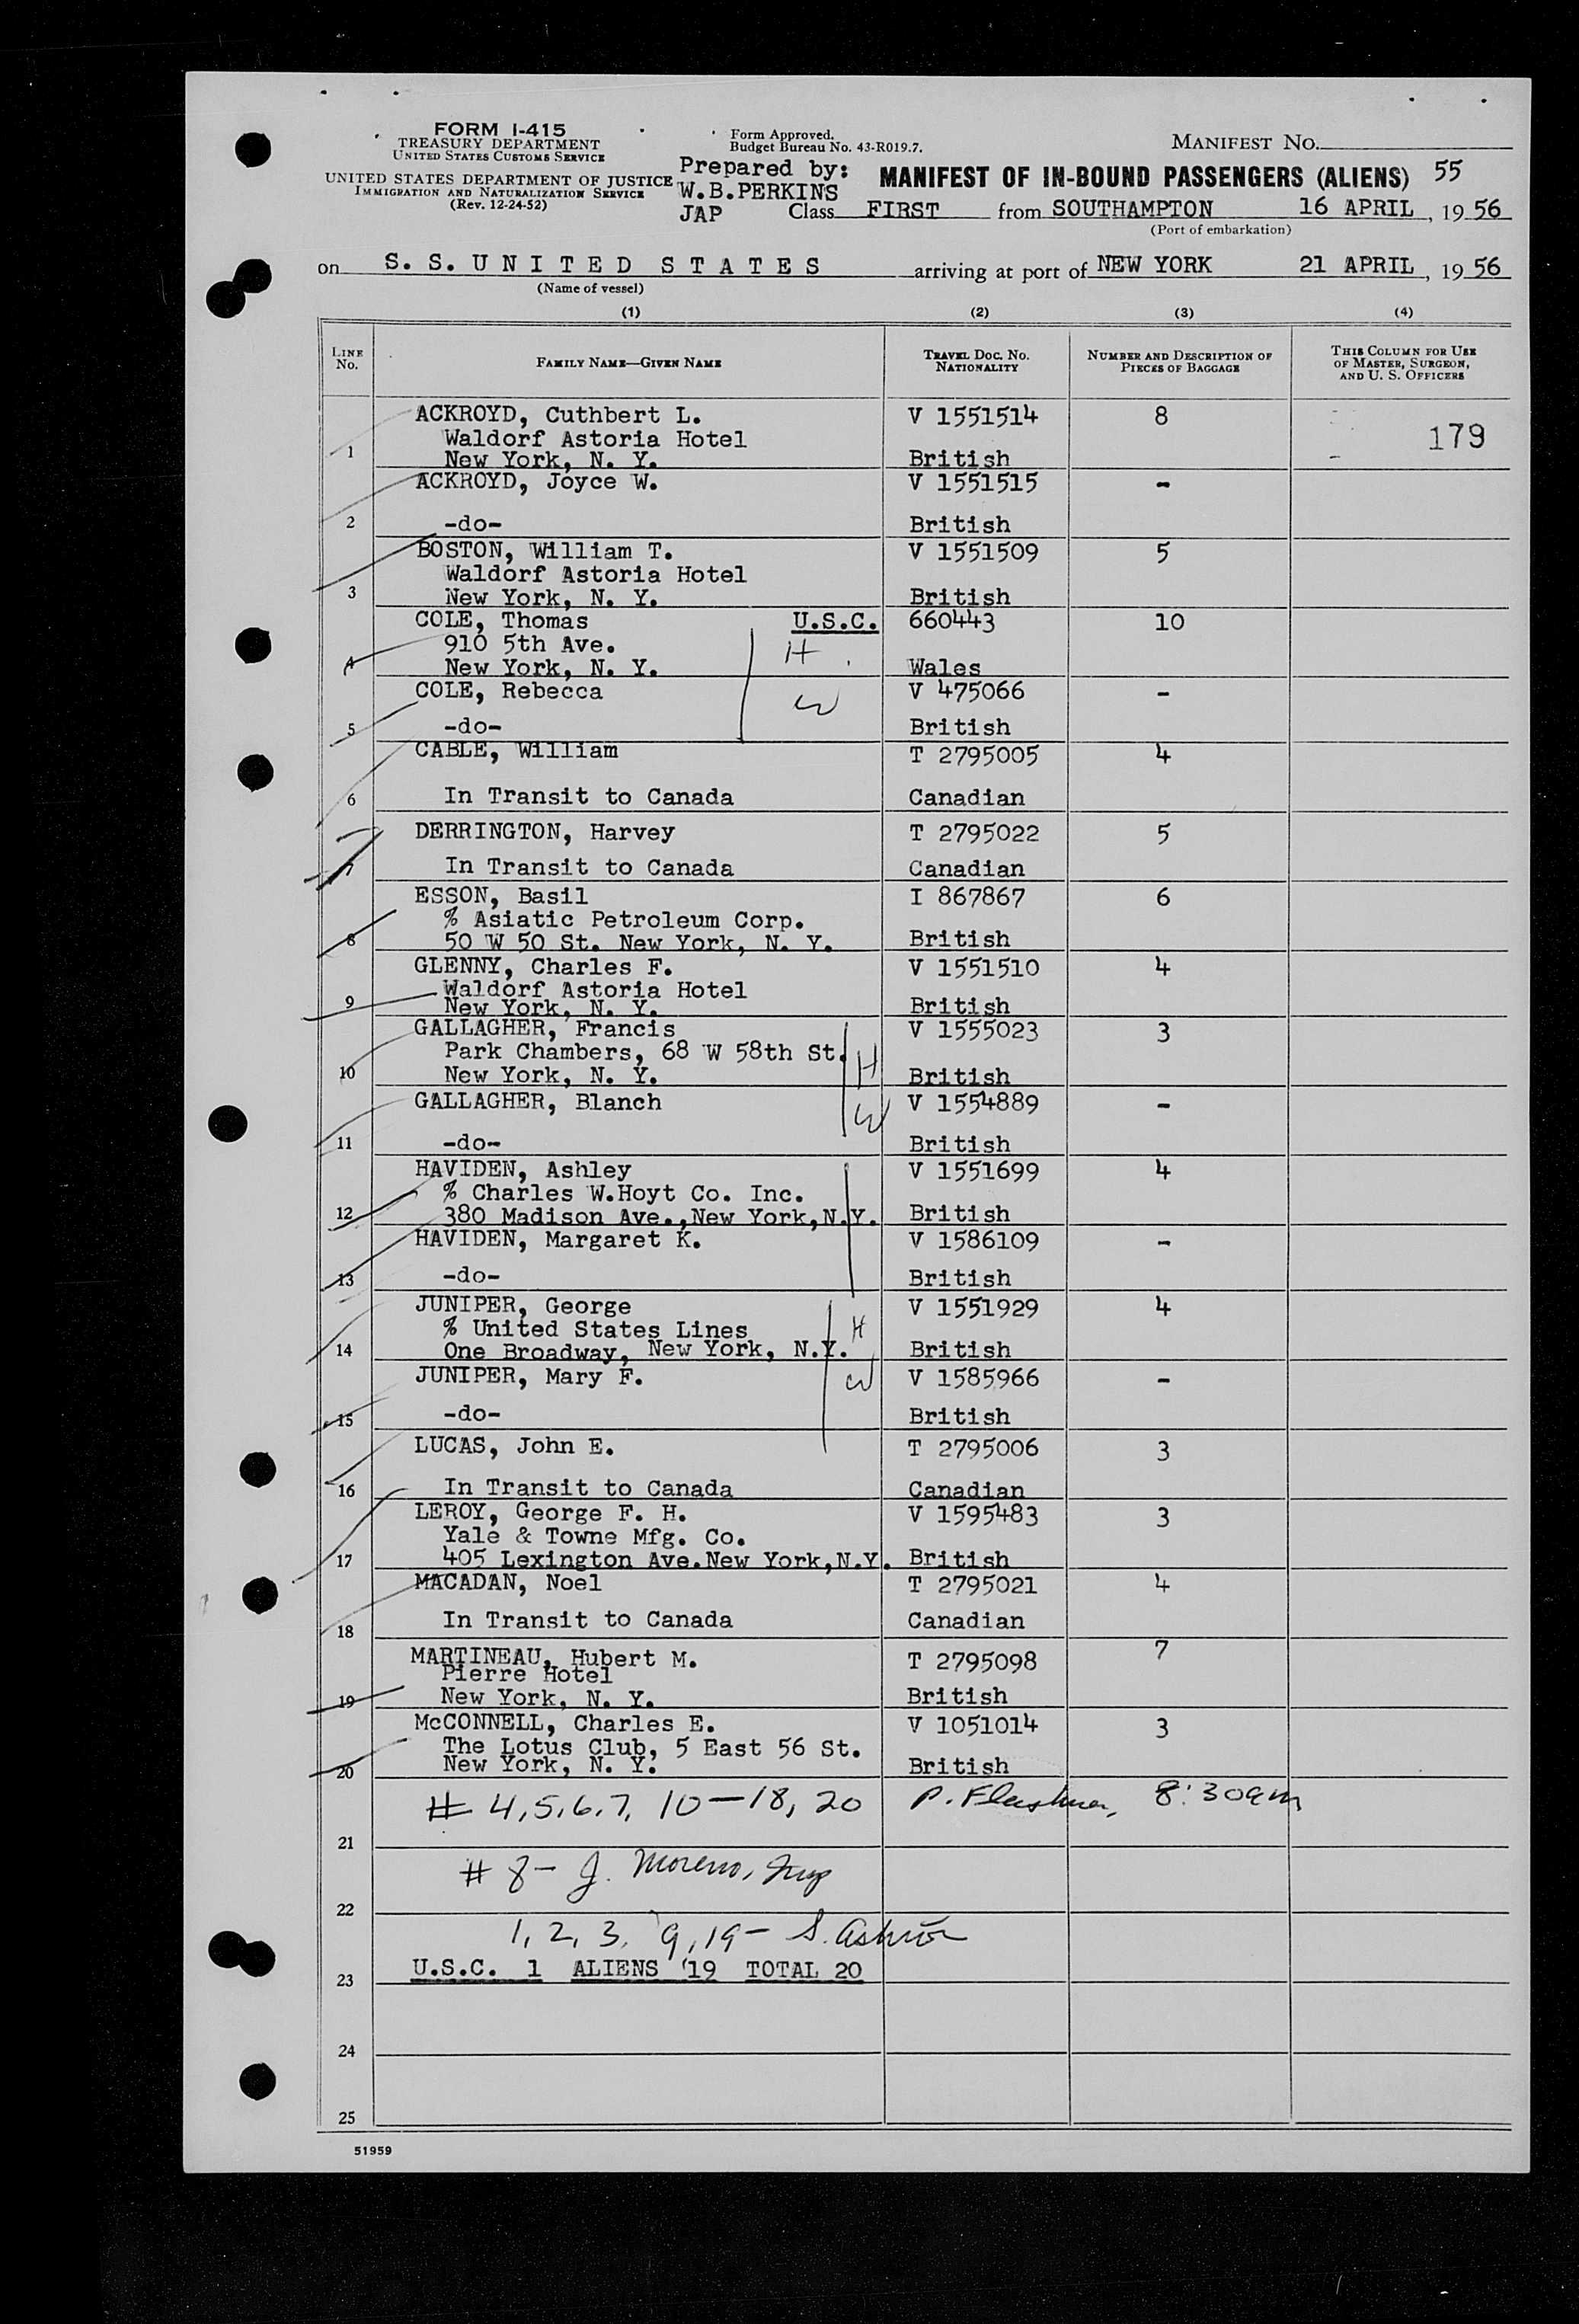 FORM I-415
TREASURY DEPARTMENT
UNITED STATES CUSTOMS SERVICE
UNITED STATES DEPARTMENT OF JUSTICE
IMMIGRATION AND NATURALIZATION SERVICE
(Rev. 12-24-52)
Form Approved.
Budget Bureau No. 43-R019.7.
MANIFEST NO.
Prepared by:
W.B.PERKINS
JAP
MANIFEST OF IN-BOUND PASSENGERS (ALIENS) 55
Class FIRST from SOUTHAMPTON 16 APRIL, 19 56
(Port of embarkation)
on S. S. U N I T E D S T A T E S arriving at port of NEW YORK 21 APRIL, 19 56
(Name of vessel)
(1) (2) (3) (4)
LINE NO. FAMILY NAME—GIVEN NAME TRAVEL DOC. NO. NATIONALITY NUMBER AND DESCRIPTION OF PIECES OF BAGGAGE THIS COLUMN FOR USE OF MASTER, SURGEON, AND U. S. OFFICERS
ACKROYD, Cuthbert L. V 1551514 8
Waldorf Astoria Hotel 179
1 New York, N. Y. British
ACKROYD, Joyce W. V 1551515 -
2 -do- British
BOSTON, William T. V 1551509 5
Waldorf Astoria Hotel
3 New York, N. Y. British
COLE, Thomas U.S.C. 660443 10
910 5th Ave. H
4 New York, N. Y. Wales
COLE, Rebecca W V 475066 -
5 -do- British
CABLE, William T 2795005 4
6 In Transit to Canada Canadian
DERRINGTON, Harvey T 2795022 5
7 In Transit to Canada Canadian
ESSON, Basil I 867867 6
% Asiatic Petroleum Corp.
8 50 W 50 St. New York, N. Y. British
GLENNY, Charles F. V 1551510 4
Waldorf Astoria Hotel
9 New York, N. Y. British
GALLAGHER, Francis V 1555023 3
Park Chambers, 68 W 58th St. H
10 New York, N. Y. British
GALLAGHER, Blanch W V 1554889 -
11 -do- British
HAVIDEN, Ashley V 1551699 4
% Charles W.Hoyt Co. Inc.
12 380 Madison Ave.,New York,N.Y. British
HAVIDEN, Margaret K. V 1586109 -
13 -do- British
JUNIPER, George V 1551929 4
% United States Lines H
14 One Broadway, New York, N.Y. British
JUNIPER, Mary F. W V 1585966 -
15 -do- British
LUCAS, John E. T 2795006 3
16 In Transit to Canada Canadian
LEROY, George F. H. V 1595483 3
Yale & Towne Mfg. Co.
17 405 Lexington Ave.New York,N.Y. British
MACADAN, Noel T 2795021 4
18 In Transit to Canada Canadian
MARTINEAU, Hubert M. T 2795098 7
Pierre Hotel
19 New York, N. Y. British
McCONNELL, Charles E. V 1051014 3
The Lotus Club, 5 East 56 St.
20 New York, N. Y. British
# 4,5,6,7, 10—18, 20 P. 8:30am
21
# 8 - J. Moreno,
22
1, 2, 3, 9, 19 - S.
23 U.S.C. 1 ALIENS 19 TOTAL 20
24
25
51959